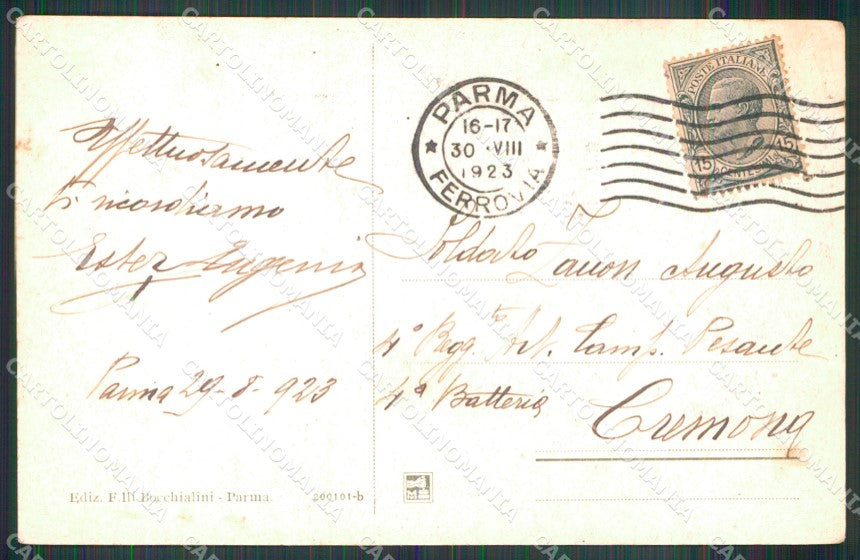 Affettuosamente
ti ricordiamo
Ester Eugenia
Parma 29-8-923
Ediz. F.lli Bocchialini - Parma.
200101-b
PARMA
16-17
30 VIII
1923
FERROVIA
POSTE ITALIANE
15 15
Soldato Zanon Augusto
4° Regg.to Art. Camp. Pesante
4ª Batteria
Cremona
CARTOLINOMANIA